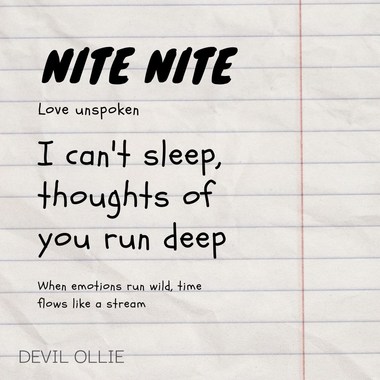 NITE NITE
Love unspoken
I can't sleep,
thoughts of
you run deep
When emotions run wild, time
flows like a stream
DEVIL OLLIE